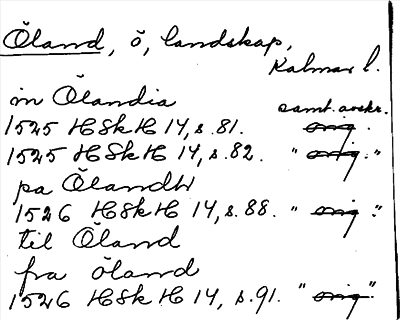 Öland, ö, landskap,
Kalmar l.
in Ölandia samt. avskr.
1525 HSkH 14, s. 81. orig.
1525 HSkH 14, s. 82. " orig. "
pa Ölandh
1526 HSkH 14, s. 88. " orig. "
til Öland
fra öland
1526 HSkH 14, s. 91. " orig. "